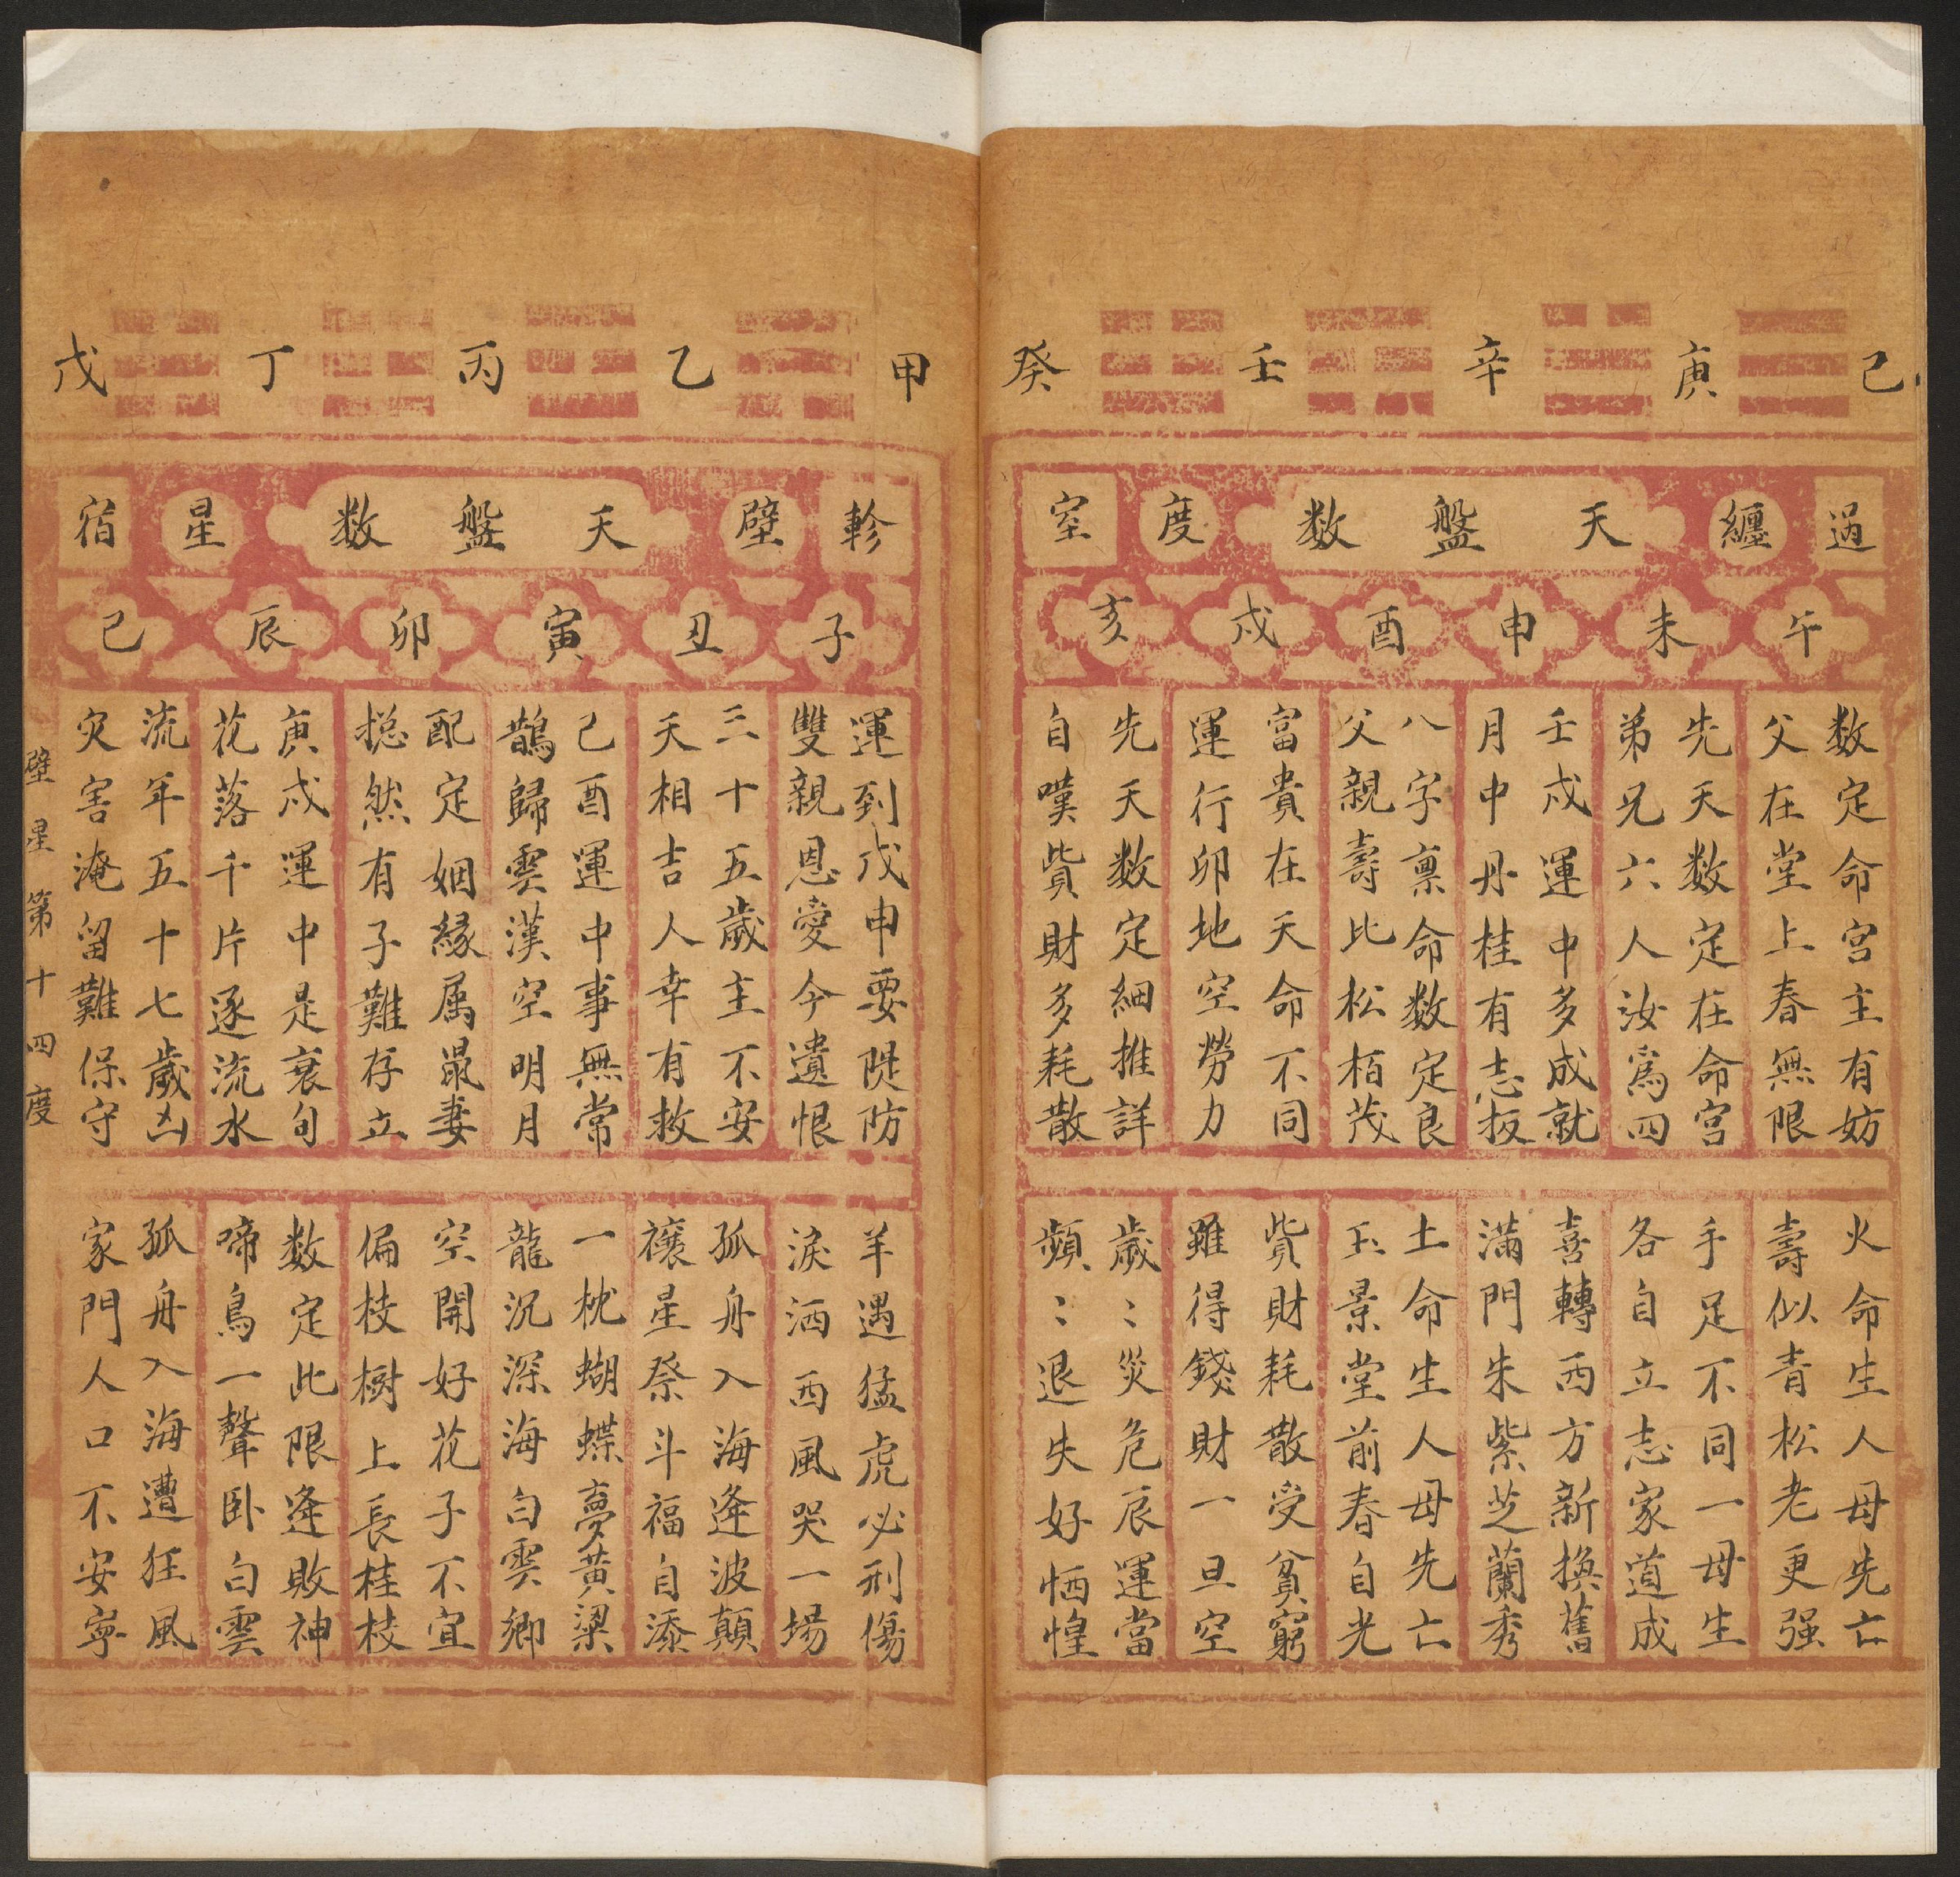 己 庚 辛 壬 癸
過 纏 天盤数 度 室
午 未 申 酉 戌 亥
数定命宫主有妨
父在堂上春無限
先天数定在命宫
弟兄六人汝爲四
壬戌運中多成就
月中丹桂有志扳
八字禀命数定良
父親壽比松栢茂
富貴在天命不同
運行卯地空勞力
先天数定細推詳
自嘆貲財多耗散
火命生人母先亡
壽似青松老更强
手足不同一母生
各自立志家道成
喜轉西方新換舊
滿門朱紫芝蘭秀
土命生人母先亡
玉景堂前春自光
貲財耗散受貧窮
雖得錢財一旦空
歲〻災危辰運當
頻〻退失好恓惶
甲 乙 丙 丁 戊
軫 壁 天盤数 星 宿
子 丑 寅 卯 辰 巳
運到戊申要隄防
雙親恩愛今遺恨
三十五歲主不安
天相吉人幸有救
己酉運中事無常
鵲歸雲漢空明月
配定姻縁属鼠妻
揔然有子難存立
庚戌運中是衰旬
花落千片逐流水
流年五十七歲凶
灾害淹留難保守
羊遇猛虎必刑傷
淚洒西風哭一場
孤舟入海逢波顛
禳星祭斗福自添
一枕蝴蝶夢黃梁
龍沉深海白雲鄉
空開好花子不宜
偏枝樹上長桂枝
数定此限逢敗神
啼鳥一聲卧白雲
孤舟入海遭狂風
家門人口不安寧
壁星第十四度